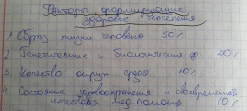 Факторы формирующие
здоровье населения
1 Образ жизни человека 50%
2 Генетические и биологические ф. 20%
3 Качество окруж среды 10%
4 Состояние здравоохранения и своевременная
мед помощь 10%